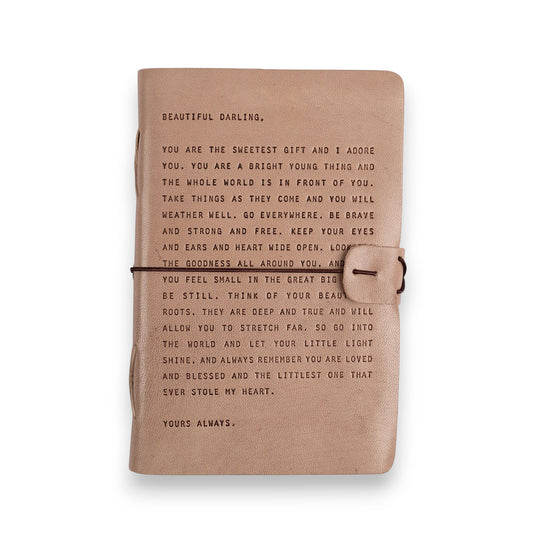 BEAUTIFUL DARLING,
YOU ARE THE SWEETEST GIFT AND I ADORE
YOU. YOU ARE A BRIGHT YOUNG THING AND
THE WHOLE WORLD IS IN FRONT OF YOU.
TAKE THINGS AS THEY COME AND YOU WILL
WEATHER WELL. GO EVERYWHERE. BE BRAVE
AND STRONG AND FREE. KEEP YOUR EYES
AND EARS AND HEART WIDE OPEN.
THE GOODNESS ALL AROUND YOU.
YOU FEEL SMALL IN THE GREAT BIG
BE STILL. THINK OF YOUR
ROOTS. THEY ARE DEEP AND TRUE AND WILL
ALLOW YOU TO STRETCH FAR. SO GO INTO
THE WORLD AND LET YOUR LITTLE LIGHT
SHINE. AND ALWAYS REMEMBER YOU ARE LOVED
AND BLESSED AND THE LITTLEST ONE THAT
EVER STOLE MY HEART.
YOURS ALWAYS.